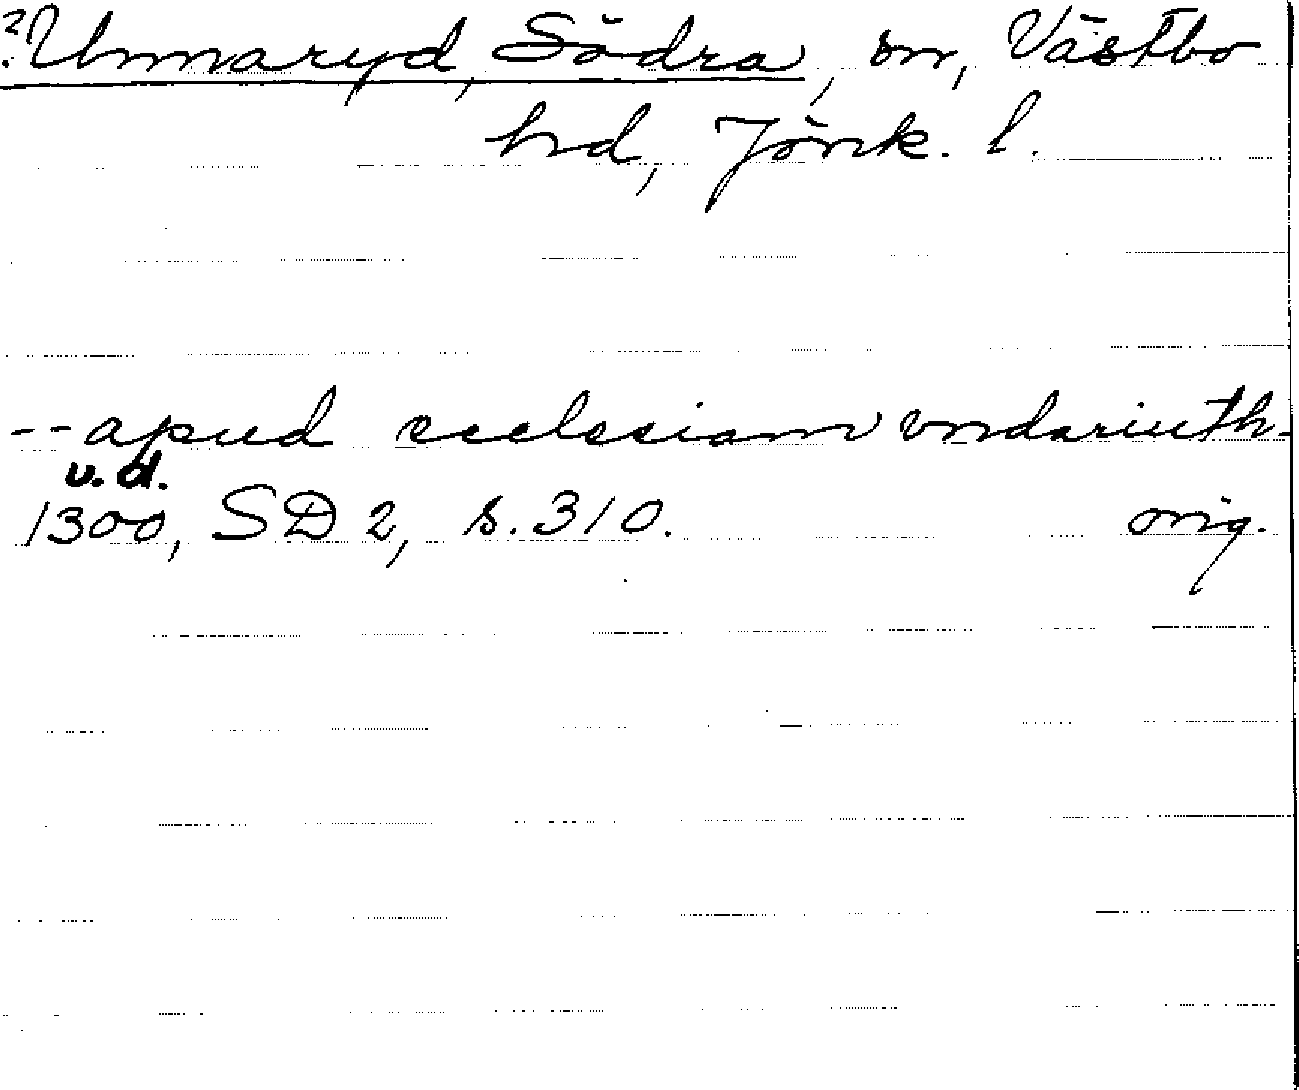 ? Unnaryd, Södra, sn, Västbo
hd, Jönk. l.
-- apud ecclesiam vndariuth-
u.d.
1300, SD 2, s. 310. orig.